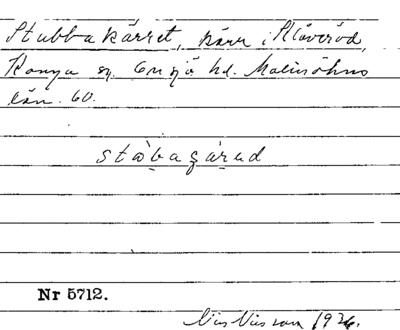 Stubbakärret, kärr i Klåveröd,
Konga sn. Onsjö hd. Malmöhus
län. 60.
stòbagárud
Nr 5712.
Nils Nilsson 1926.